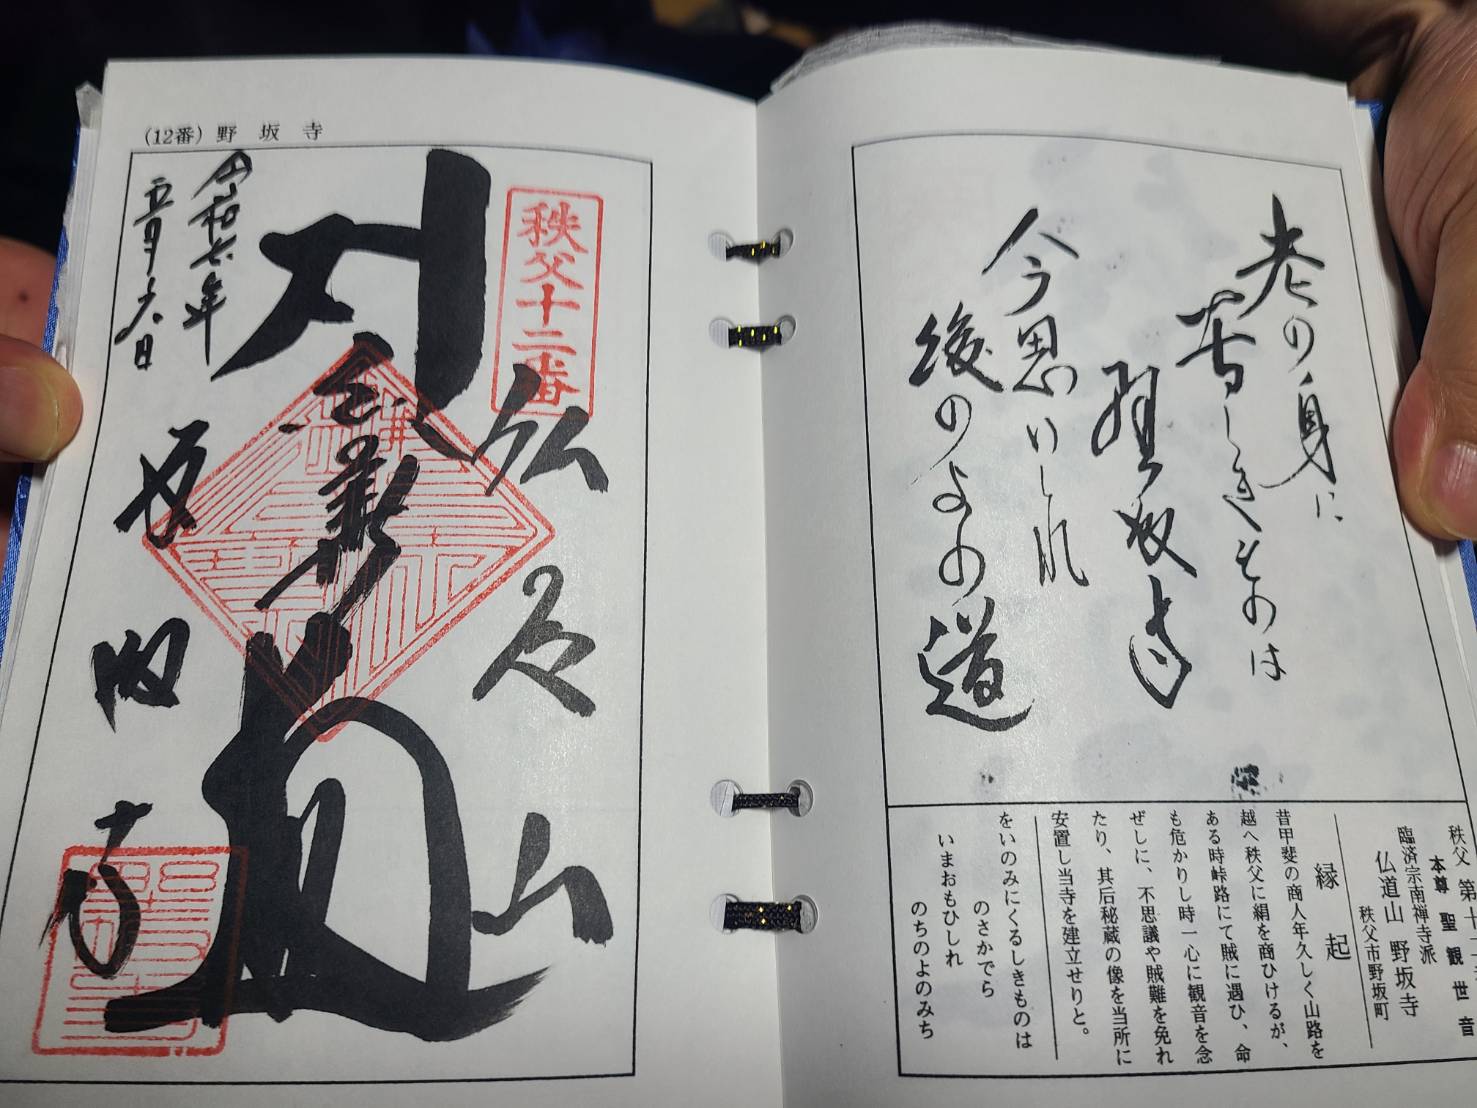 秩父
本尊 聖観世音
臨済宗南禅寺派
仏道山 野坂寺
秩父市野坂町
縁起
昔甲斐の商人年久しく山路を
越へ秩父に絹を商ひけるが、
ある時峠路にて賊に遇ひ、命
も危かりし時一心に観音を念
ぜしに、不思議や賊難を免れ
たり、其后秘蔵の像を当所に
安置し当寺を建立せりと。
をいのみにくるしきものは
のさかでら
いまおもひしれ
のちのよのみち
老の身に
苦しきものは
野坂寺
今思ひしれ
後のよの道
(12番) 野坂寺
秩父十二番
仏道山
野坂寺